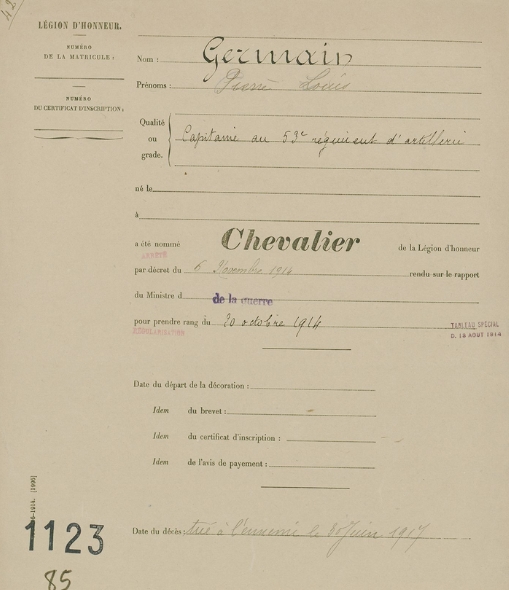 42
LÉGION D'HONNEUR.
NUMÉRO
DE LA MATRICULE :
NUMÉRO
DU CERTIFICAT D'INSCRIPTION :
Nom : Germain
Prénoms : Pierre Louis
Qualité
ou
grade.
Capitaine au 53e régiment d'artillerie
né le
à
a été nommé Chevalier de la Légion d'honneur
ARRÊTÉ
par décret du 6 Novembre 1914 rendu sur le rapport
du Ministre d de la guerre
pour prendre rang du 20 octobre 1914
RÉGULARISATION
TABLEAU SPÉCIAL
D. 13 AOUT 1914
Date du départ de la décoration :
Idem du brevet :
Idem du certificat d'inscription :
Idem de l'avis de payement :
Date du décès: tué à l'ennemi le Juin 1917
1123
85